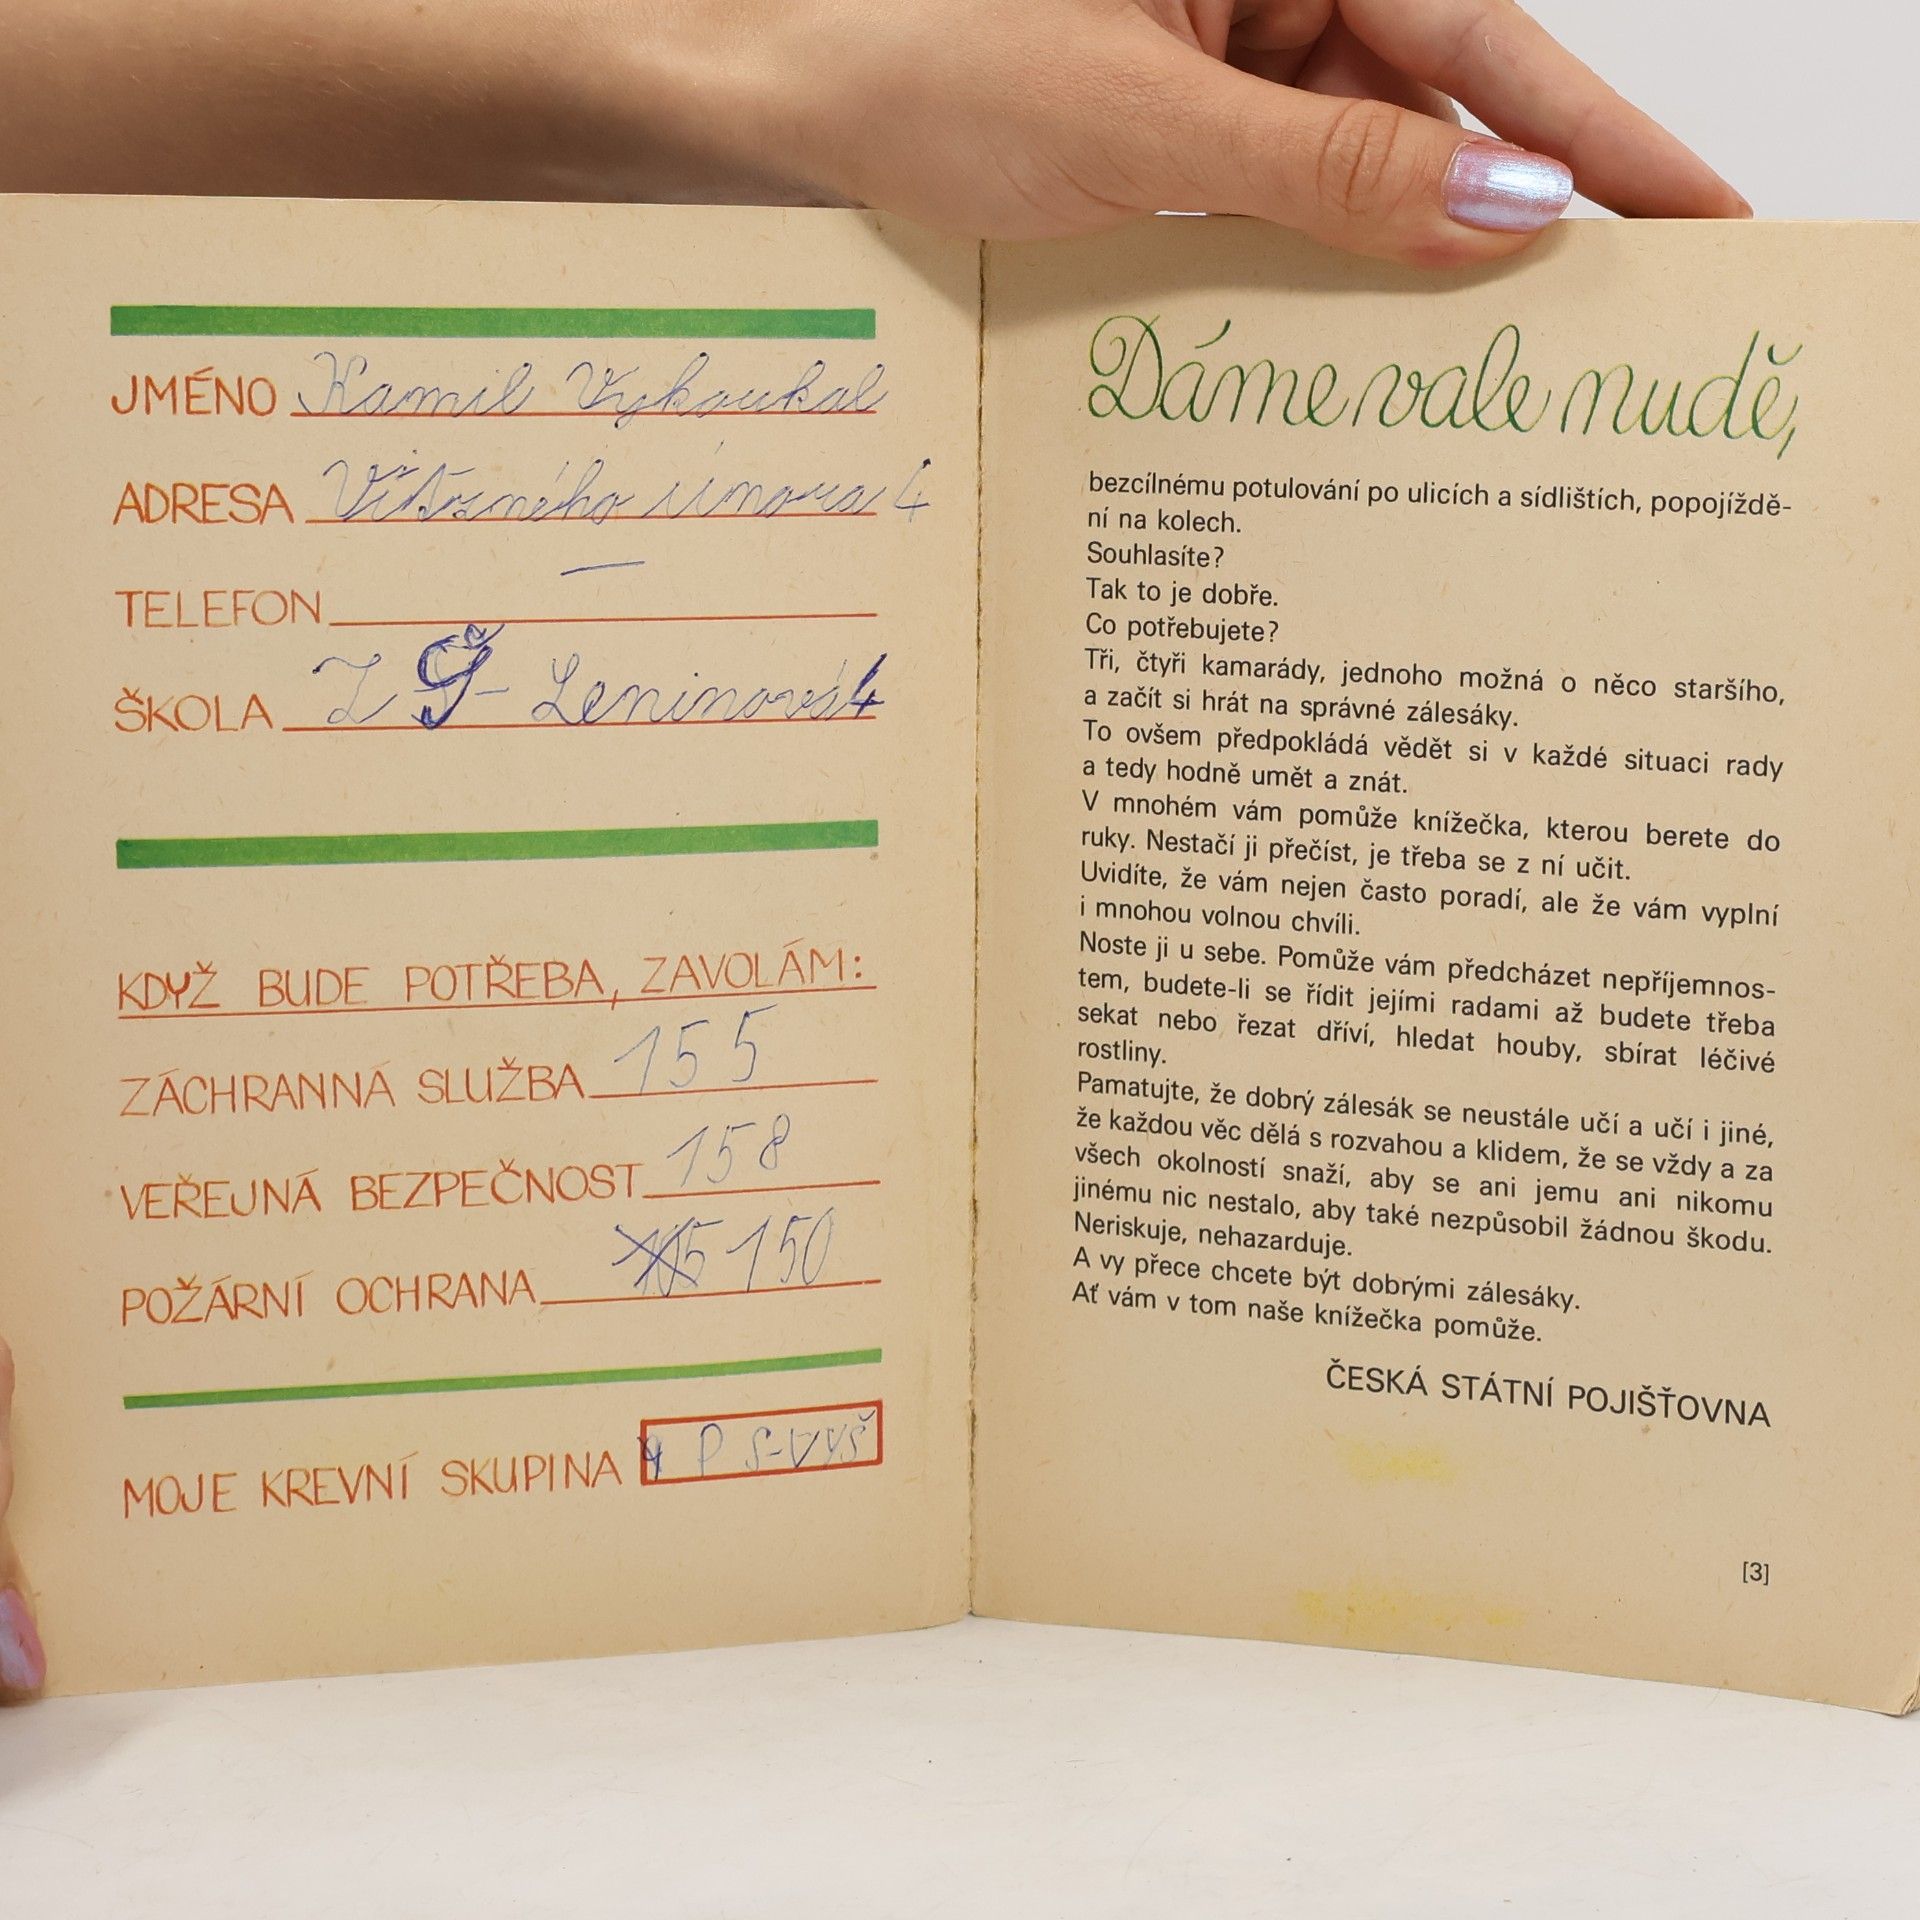 JMÉNO Kamil Vykoukal
ADRESA Vítězného února 4
TELEFON —
ŠKOLA ZŠ - Leninova 4
KDYŽ BUDE POTŘEBA, ZAVOLÁM:
ZÁCHRANNÁ SLUŽBA 155
VEŘEJNÁ BEZPEČNOST 158
POŽÁRNÍ OCHRANA 150
MOJE KREVNÍ SKUPINA
Dáme vale nudě,
bezcílnému potulování po ulicích a sídlištích, popojíždě-
ní na kolech.
Souhlasíte?
Tak to je dobře.
Co potřebujete?
Tři, čtyři kamarády, jednoho možná o něco staršího,
a začít si hrát na správné zálesáky.
To ovšem předpokládá vědět si v každé situaci rady
a tedy hodně umět a znát.
V mnohém vám pomůže knížečka, kterou berete do
ruky. Nestačí ji přečíst, je třeba se z ní učit.
Uvidíte, že vám nejen často poradí, ale že vám vyplní
i mnohou volnou chvíli.
Noste ji u sebe. Pomůže vám předcházet nepříjemnos-
tem, budete-li se řídit jejími radami až budete třeba
sekat nebo řezat dříví, hledat houby, sbírat léčivé
rostliny.
Pamatujte, že dobrý zálesák se neustále učí a učí i jiné,
že každou věc dělá s rozvahou a klidem, že se vždy a za
všech okolností snaží, aby se ani jemu ani nikomu
jinému nic nestalo, aby také nezpůsobil žádnou škodu.
Neriskuje, nehazarduje.
A vy přece chcete být dobrými zálesáky.
Ať vám v tom naše knížečka pomůže.
ČESKÁ STÁTNÍ POJIŠŤOVNA
[3]